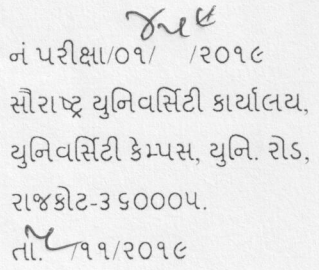 નં પરીક્ષા/૦૧/ /૨૦૧૯
સૌરાષ્ટ્ર યુનિવર્સિટી કાર્યાલય,
યુનિવર્સિટી કેમ્પસ, યુનિ. રોડ,
રાજકોટ-૩૬૦૦૦૫.
તા. /૧૧/૨૦૧૯